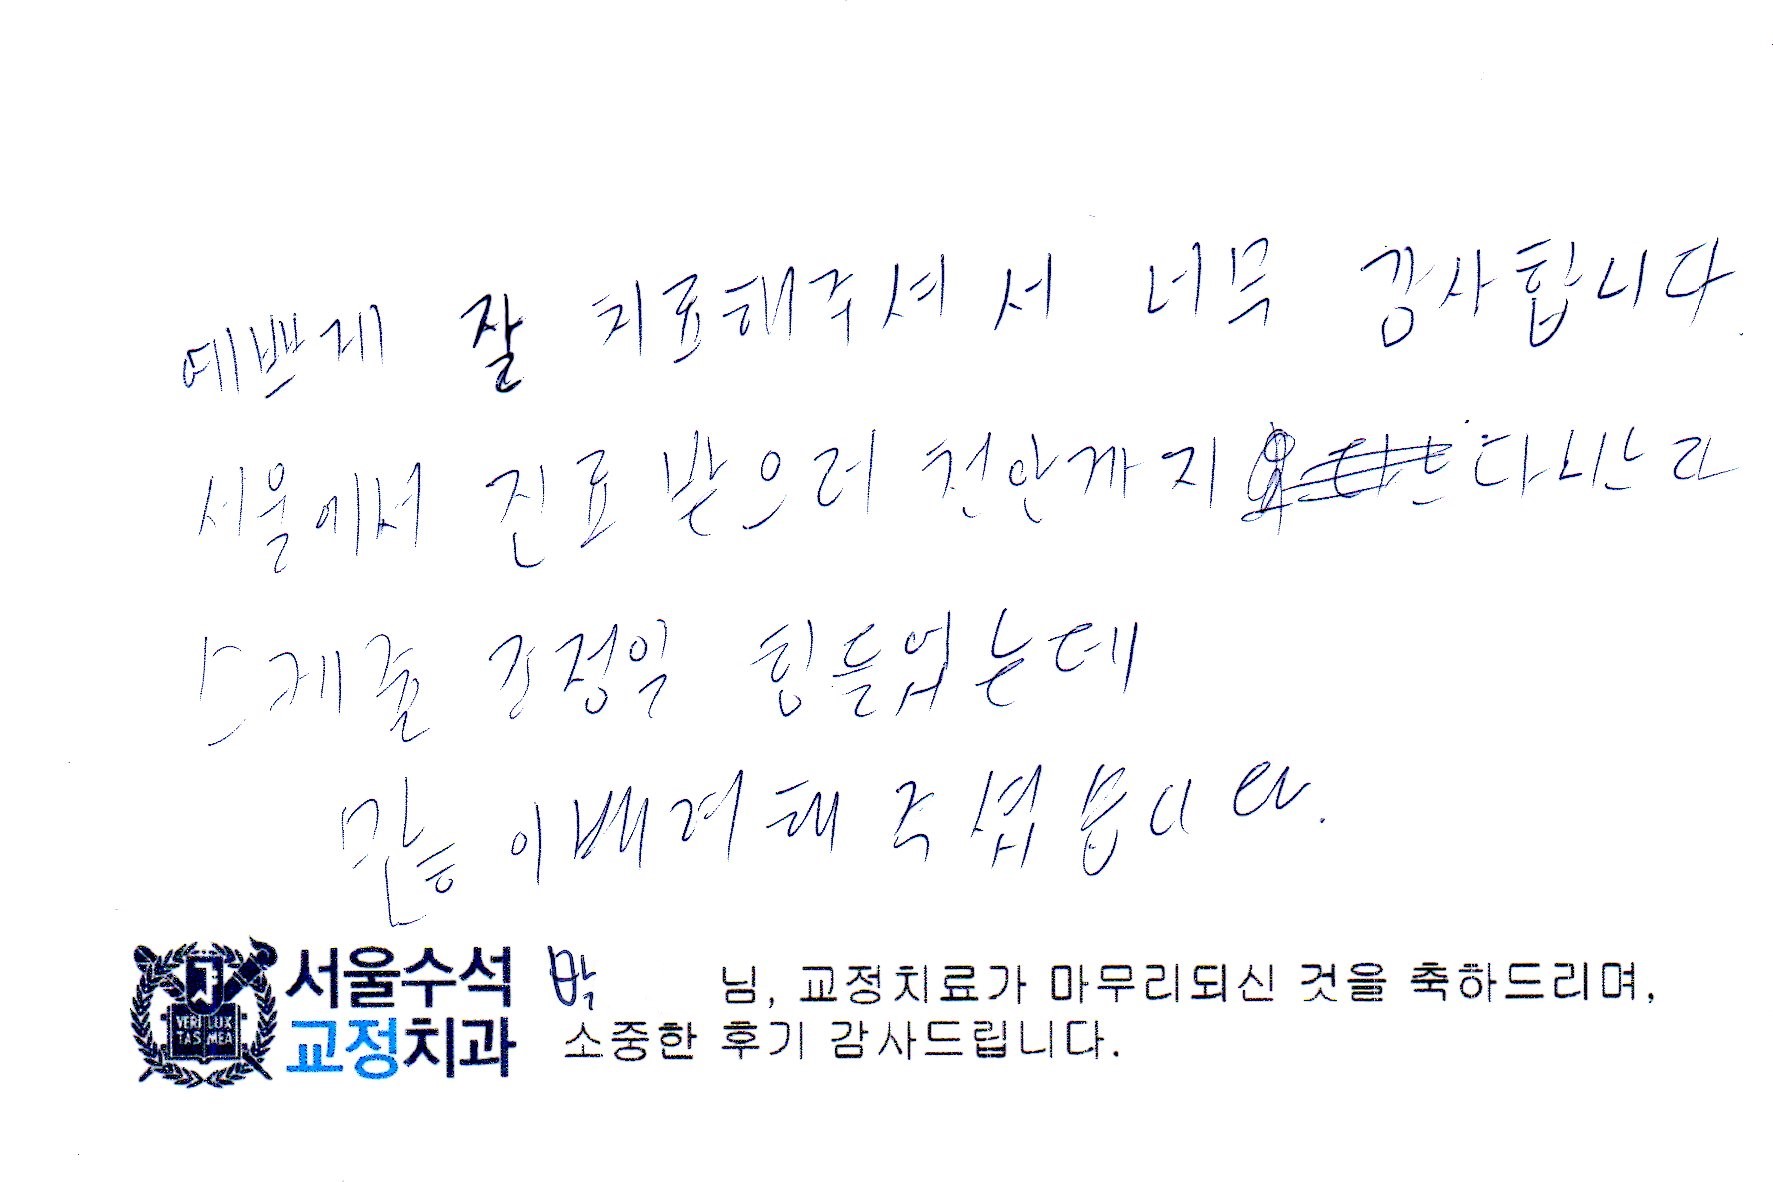 예쁘게 잘 치료해주셔서 너무 감사합니다.
서울에서 진료 받으러 천안까지 다니느라
스케줄 조정일 힘들었는데
많이 배려해 주셨습니다.
서울수석
교정치과
VERI LUX
TAS MEA
박 님, 교정치료가 마무리되신 것을 축하드리며,
소중한 후기 감사드립니다.